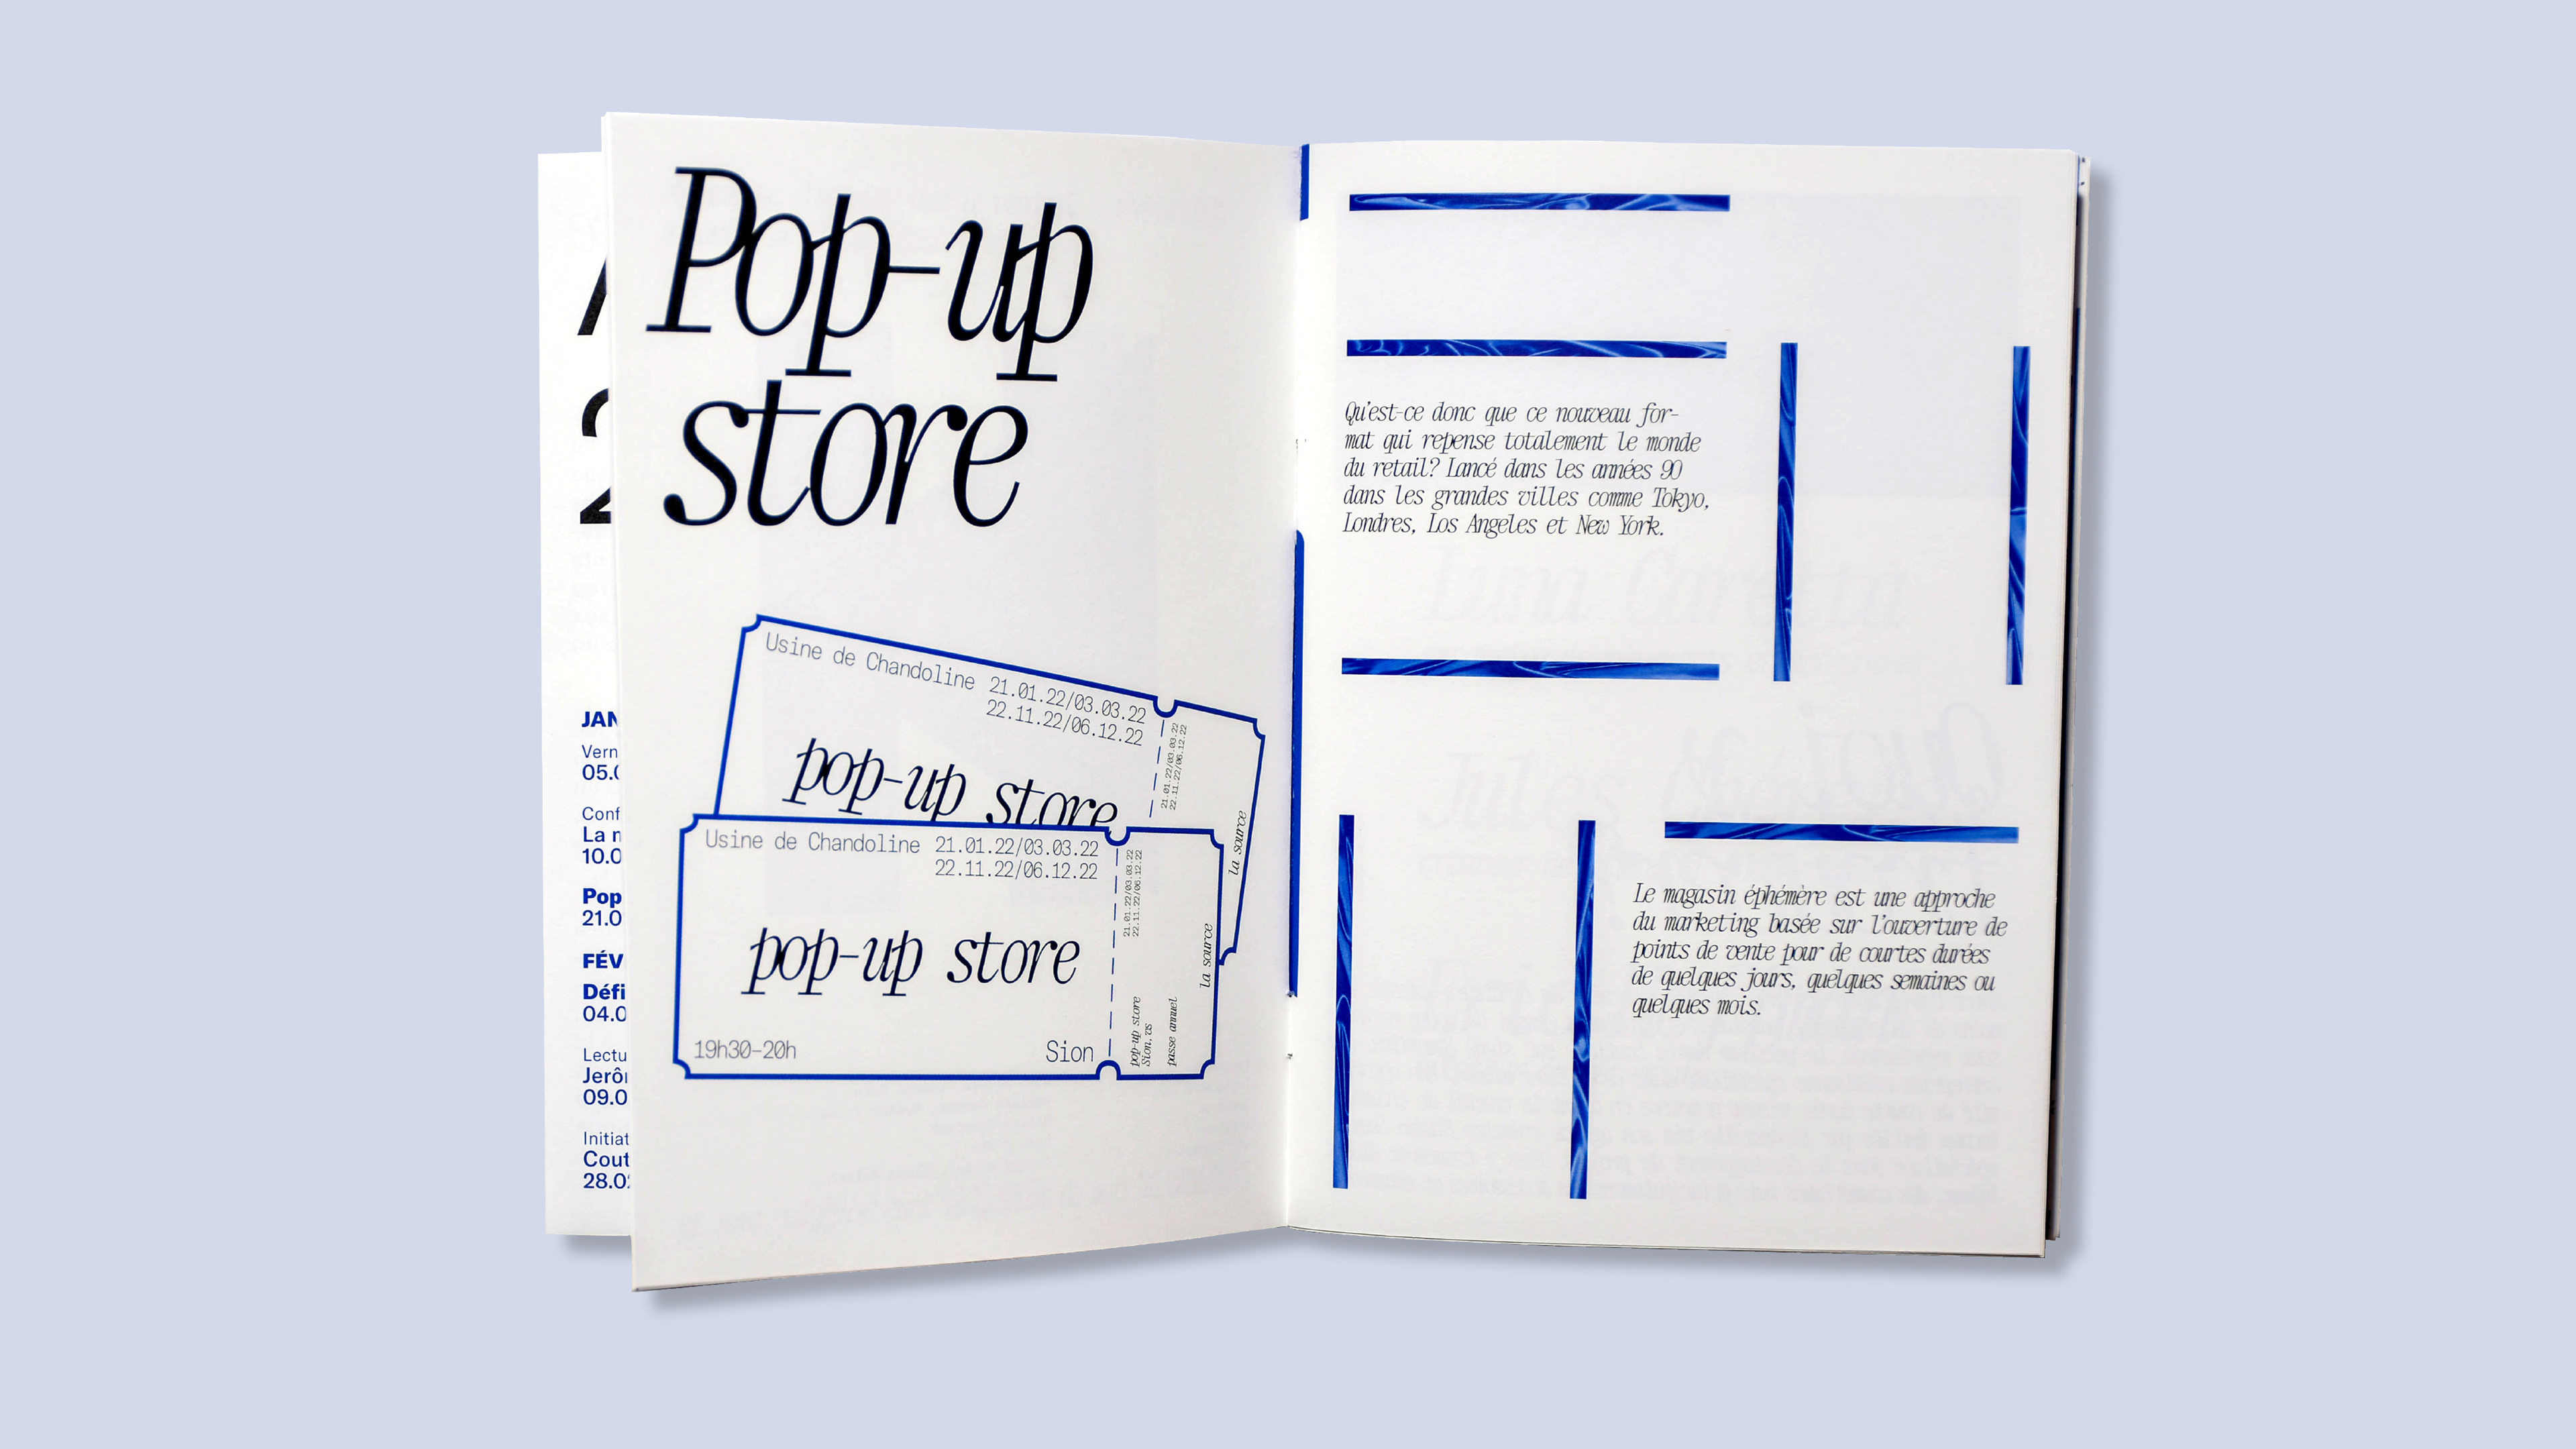 JAN
Vern
05.0
Conf
10.0
Pop
21.0
FÉV
Défi
04.0
Lectu
09.0
Initiat
Cout
28.0
Pop-up
store
Usine de Chandoline 21.01.22/03.03.22
22.11.22/06.12.22
pop-up store
21.01.22/03.03.22
22.11.22/06.12.22
la source
Usine de Chandoline 21.01.22/03.03.22
22.11.22/06.12.22
pop-up store
19h30-20h
Sion
21.01.22/03.03.22
22.11.22/06.12.22
la source
pop-up store
Sion, vs
passe annuel
Qu'est-ce donc que ce nouveau for-
mat qui repense totalement le monde
du retail? Lancé dans les années 90
dans les grandes villes comme Tokyo,
Londres, Los Angeles et New York.
Le magasin éphémère est une approche
du marketing basée sur l'ouverture de
points de vente pour de courtes durées
de quelques jours, quelques semaines ou
quelques mois.